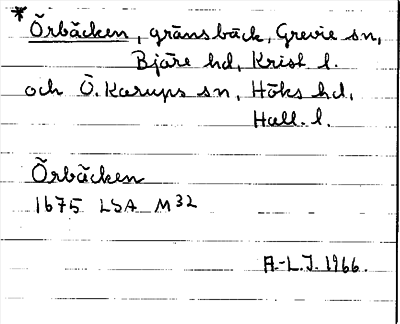 * Örbäcken, gränsbäck, Grevie sn,
Bjäre hd, Krist. l.
och Ö. Karups sn, Höks hd,
Hall. l.
Örbäcken
1675 LSA M32
A.-L.J. 1966.